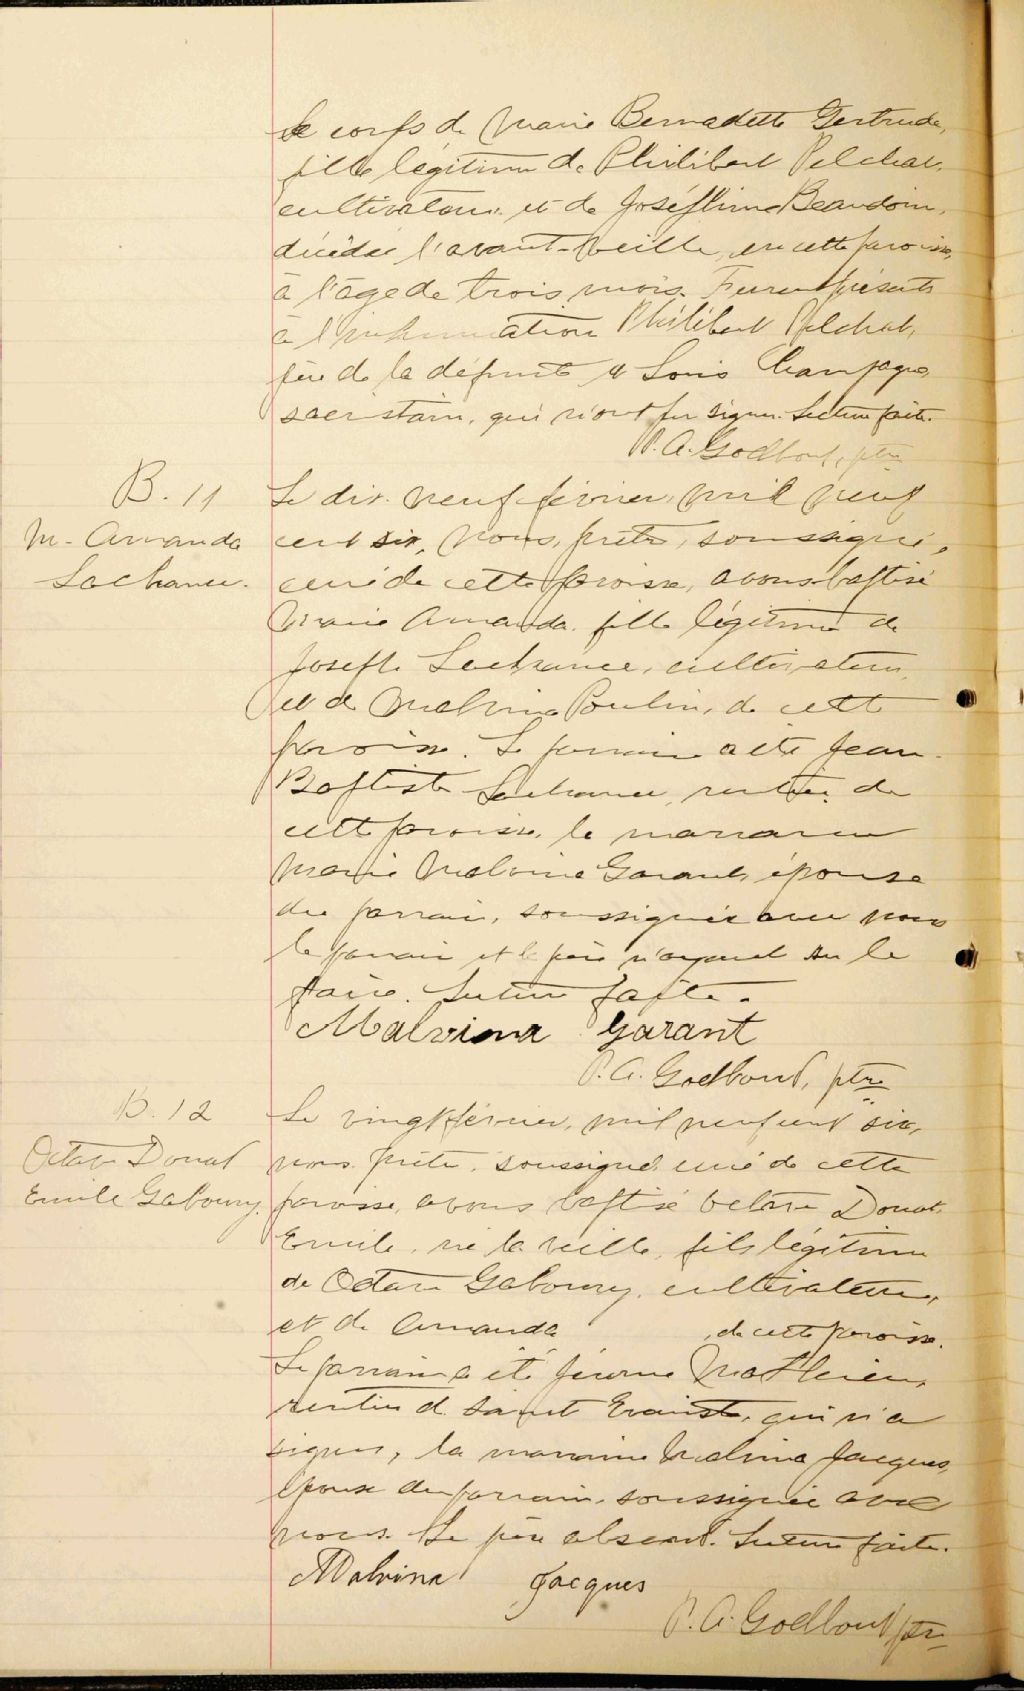 le corps de Marie Bernadette Gertrude,
fille légitime de Philibert Pelchat,
cultivateur, et de Joséphine Beaudoin,
décédée l'avant-veille, en cette paroisse,
à l'âge de trois mois. Furent présents
à l'inhumation Philibert Pelchat,
père de la défunte et Louis Champagne,
sacristain, qui n'ont pu signer. Lecture faite.
P. A. Godbout, ptre
B. 11
M. Amanda
Lachance.
Le dix-neuf février, mil neuf
cent six, nous, prêtre, soussigné,
curé de cette paroisse, avons baptisé
Marie Amanda, fille légitime de
Joseph Lachance, cultivateur,
et de Malvina Poulin, de cette
paroisse. Le parrain a été Jean-
Baptiste Lachance, rentier de
cette paroisse, la marraine
Marie Malvina Garant, épouse
du parrain, soussignée avec nous
le parrain et le père n'ayant su le
faire. Lecture faite.
Malvina Garant
P. A. Godbout, ptre
B. 12
Octave Donat
Emile Gaboury.
Le vingt février, mil neuf cent six,
nous prêtre, soussigné, curé de cette
paroisse, avons baptisé Octave Donat
Emile, né la veille, fils légitime
de Octave Gaboury, cultivateur,
et de Amanda , de cette paroisse.
Le parrain a été Jérome Mathieu,
rentier de Saint Evariste, qui n'a
signer, la marraine Malvina Jacques,
épouse du parrain, soussignée avec
nous. Le père absent. Lecture faite.
Malvina Jacques
P. A. Godbout ptre